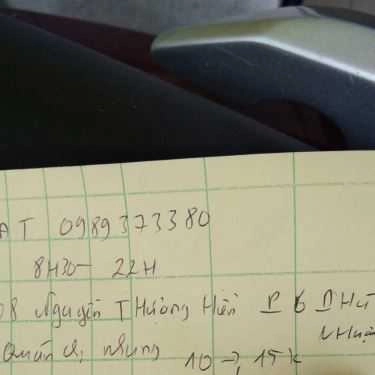 AT 0989373380
8H30 - 22H
08 Nguyễn Thượng Hiền P 6 Phú Nhuận
Quán chị Nhung 10 -> 15k